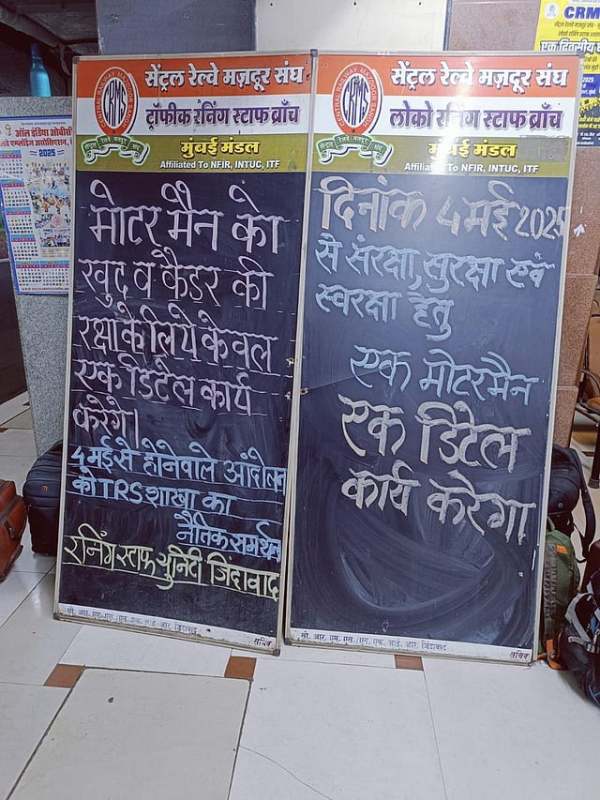 सेंट्रल रेल्वे मज़दूर संघ
ट्रॉफीक रंनिंग स्टाफ ब्राँच
CRMS
मुंबई मंडल
Affiliated To NFIR, INTUC, ITF
मोटर मैन को
खुद व कैडर की
रक्षा के लिये केवल
एक डिटेल कार्य
करेगे।
4 मई से होनेवाले आंदोलन
को TRS शाखा का
नैतिक समर्थन
रनिंग स्टाफ युनिटी जिंदाबाद
सचिव
सेंट्रल रेल्वे मज़दूर संघ
लोको रनिंग स्टाफ ब्राँच
CRMS
मुंबई मंडल
Affiliated To NFIR, INTUC, ITF
दिनांक 4 मई 2025
से संरक्षा, सुरक्षा एवं
स्वरक्षा हेतु
एक मोटरमैन
एक डिटेल
कार्य करेगा
सचिव
ऑल इंडिया ओबीसी
2025
CRM